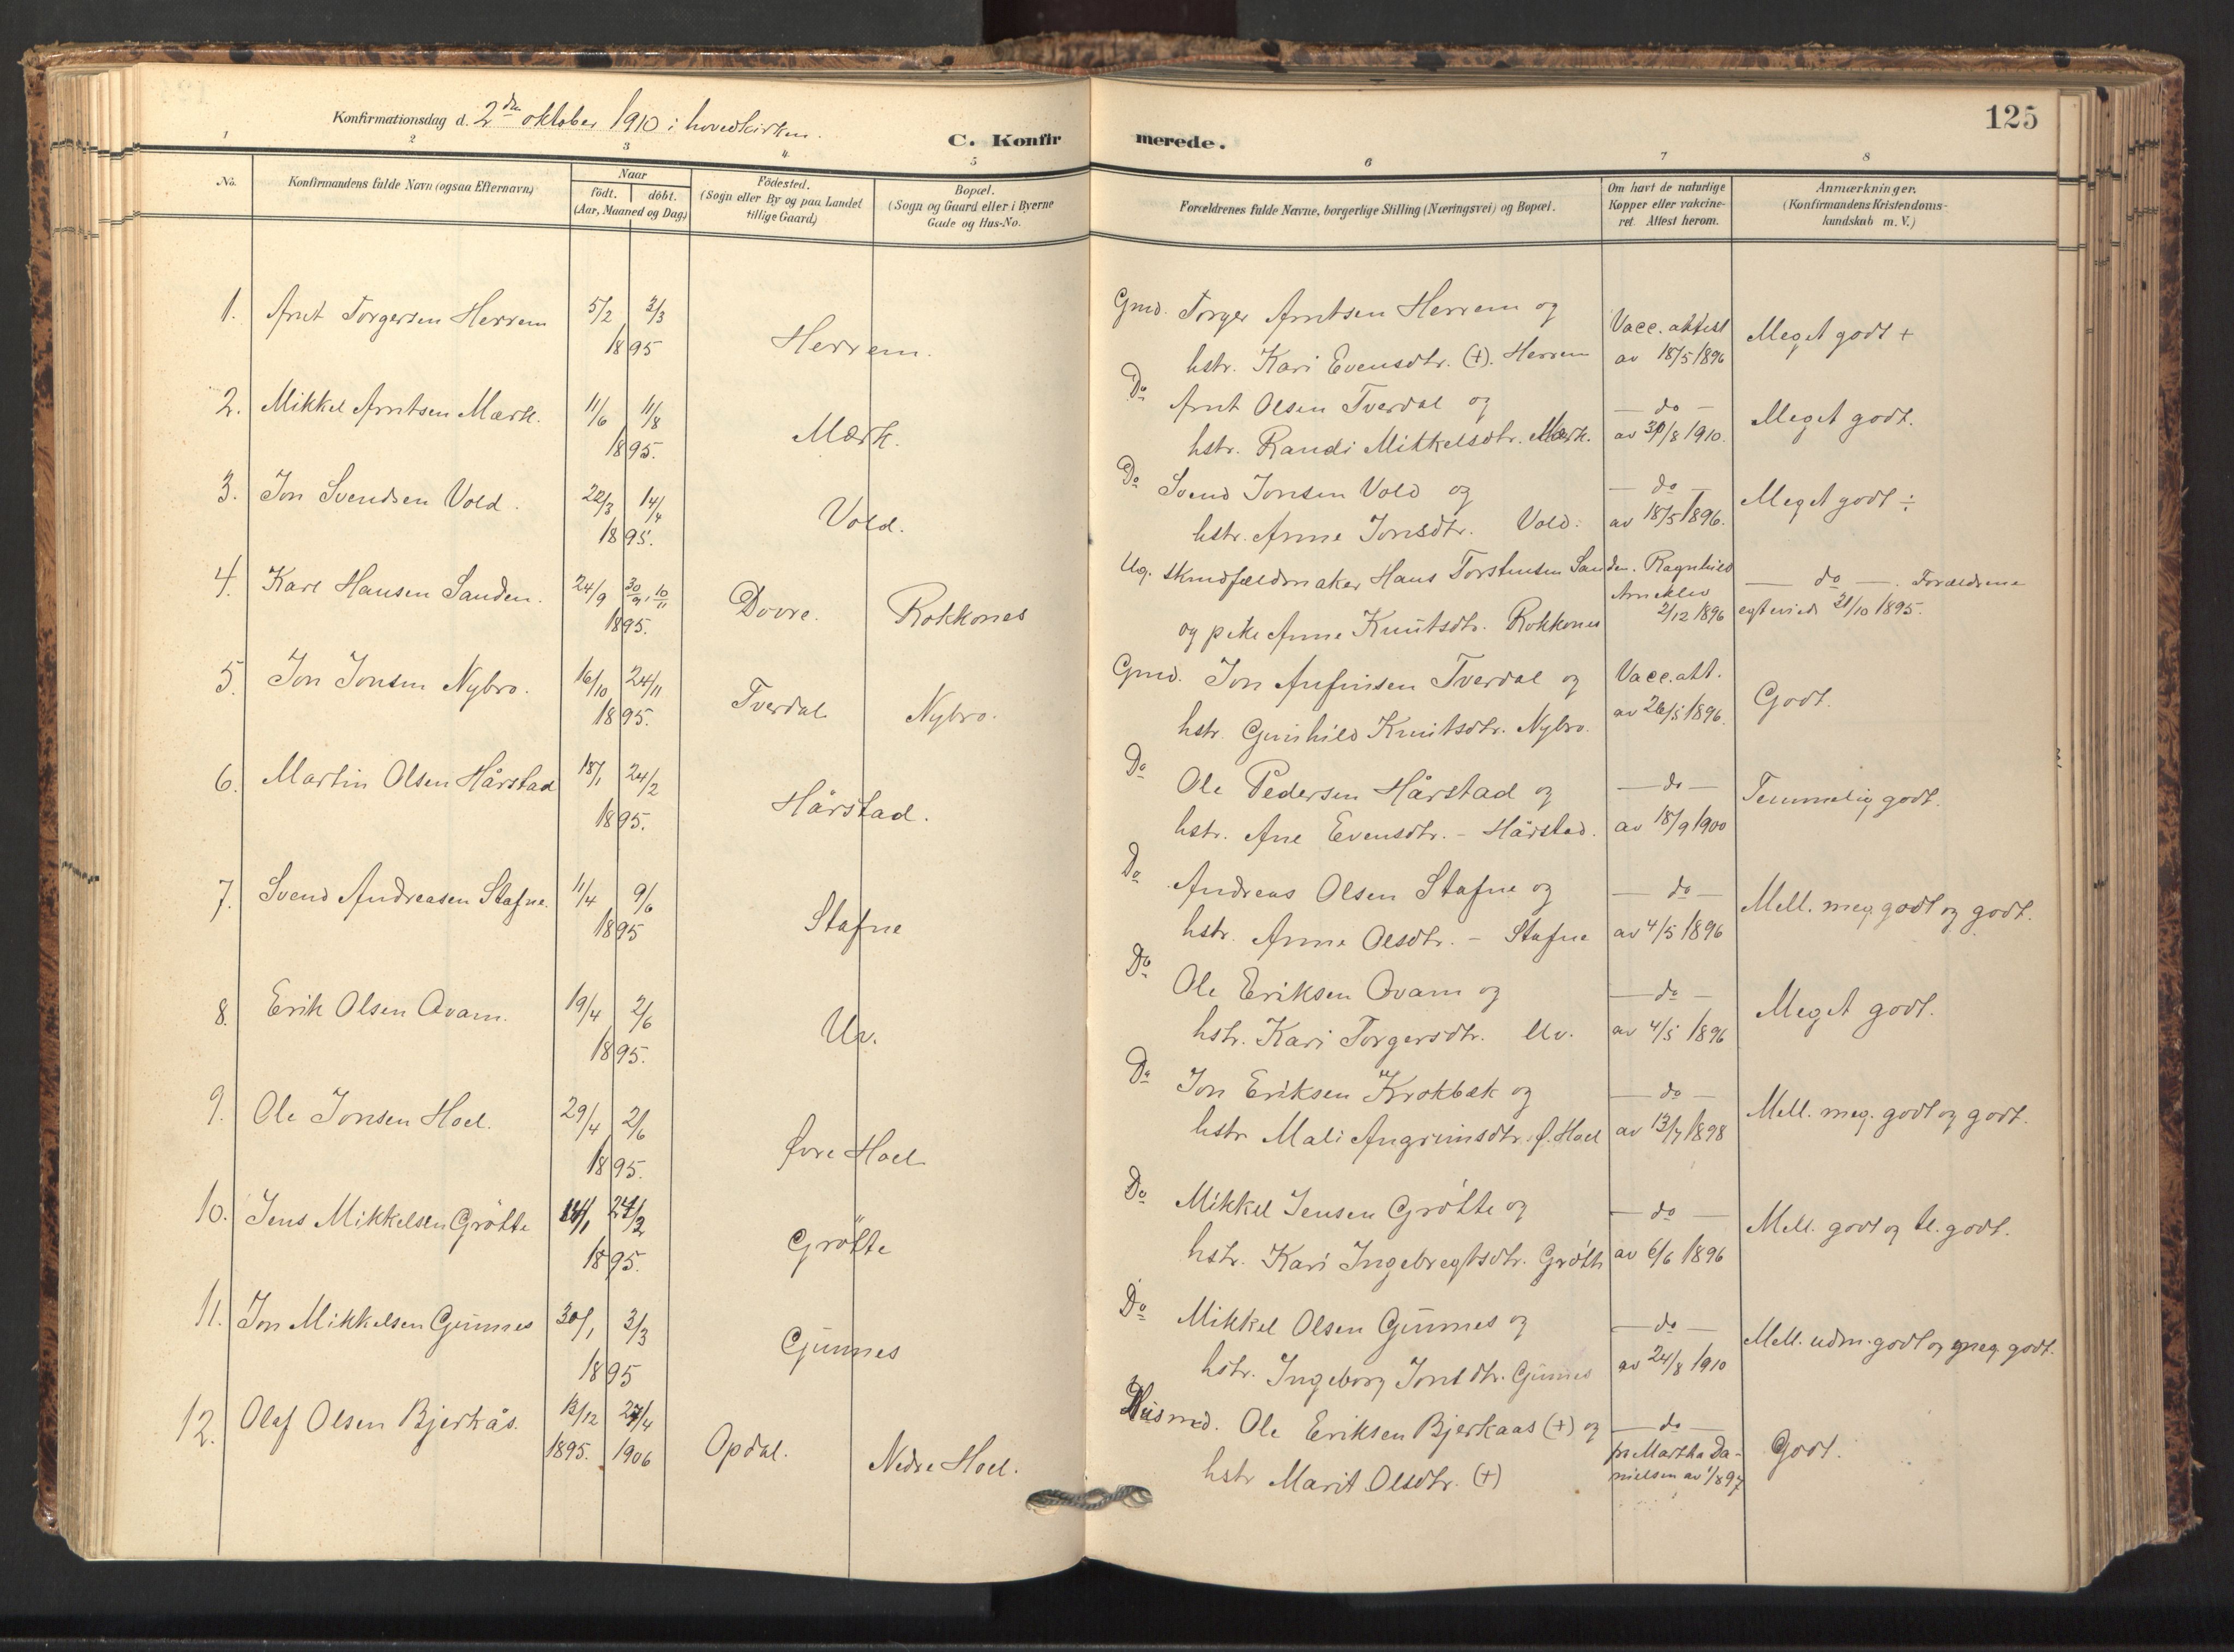 Konfirmationsdag d. 2den oktober 1910 i hovedkirken.
C. Konfirmerede.
125
1 2 3 4 5 6 7 8
No.
Konfirmandens fulde Navn (ogsaa Efternavn)
Naar
födt. döbt.
(Aar, Maaned og Dag)
Födested.
(Sogn eller By og paa Landet
tillige Gaard)
Bopæl.
(Sogn og Gaard eller i Byerne
Gade og Hus-No.
Forældrenes fulde Navne, borgerlige Stilling (Næringsvei) og Bopæl.
Om havt de naturlige
Kopper eller vakcine-
ret. Attest herom.
Anmærkninger.
(Konfirmandens Kristendoms-
kundskab m. V.)
1. Arnt Torgersen Herrem 5/2 3/3
1895
Herrem.
Gmd. Torger Arntsen Herrem og
hstr. Kari Evensdtr. (+). Herrem
Vacc. attest
av 18/5 1896
Meget godt +
2. Mikkel Arntsen Mærk. 11/6 11/8
1895.
Mærk.
Do Arnt Olsen Tverdal og
hstr. Randi Mikkelsdtr. Mærk.
— do —
av 30/8 1910.
Meget godt.
3. Jon Svendsen Vold. 22/3 14/4
1895.
Vold.
Do Svend Jonsen Vold og
hstr. Anne Jonsdtr. Vold.
— do —
av 18/5 1896.
Meget godt ÷
4. Karl Hansen Sanden. 24/9 30/9, 10/11
1895.
Dovre. Rokkones
Ug. skindfeldmaker Hans Torstensen Sanden.
og pike Anne Knutsdtr. Rokkones
Ragnhild
Arneklev
2/12 1896
— do —. Forældrene
egteviede 31/10 1895.
5. Jon Jonsen Nybro. 16/10 24/11
1895.
Tverdal Nybro.
Gmd. Jon Arfinsen Tverdal og
hstr. Gunhild Knutsdtr. Nybro.
Vacc. att.
av 26/5 1896.
Godt.
6. Martin Olsen Hårstad 18/1 24/2
1895.
Hårstad.
Do Ole Pedersen Hårstad og
hstr. Ane Evensdtr. - Hårstad.
— do —
av 18/9 1900
Temmelig godt.
7. Svend Andreasen Stafne. 11/4 9/6
1895
Stafne
Do Andreas Olsen Stafne og
hstr. Anne Olsdtr. - Stafne
— do —
av 4/5 1896
Mell. meg. godt og godt.
8. Erik Olsen Qvam. 19/4 2/6
1895.
Uv.
Do Ole Eriksen Qvam og
hstr. Kari Torgersdtr. Uv.
— do —
av 4/5 1896
Meget godt.
9. Ole Jonsen Hoel. 29/4 2/6
1895.
Øvre Hoel
Do Jon Eriksen Krokbæk og
hstr Mali Angrimsdtr. ø. Hoel
— do —
av 13/7 1898
Mell. meg. godt og godt.
10. Jens Mikkelsen Grötte 24/2
1895.
Grötte
Do Mikkel Jensen Grötte og
hstr. Kari Ingebregtsdtr. Grötte
— do —
av 6/6 1896
Mell. godt og tl. godt.
11. Jon Mikkelsen Gunnes 30/1 3/3
1895
Gunnes
Do Mikkel Olsen Gunnes og
hstr. Ingeborg Jonsdtr. Gunnes
— do —
av 24/8 1910
Mell. udm. godt og meg. godt.
12. Olaf Olsen Bjerkås. 13/12 27/4
1895. 1906
Opdal. Nedre Hoel.
Husmd. Ole Eriksen Bjerkaas (+) og
hstr Marit Olsdtr. (+)
— do —
fr. Martha Da-
nielsen av 1/8 97
Godt.